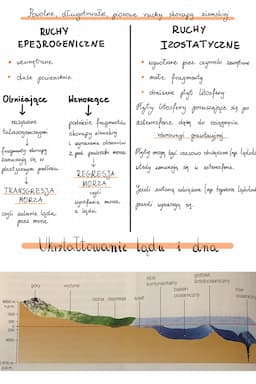 Powolne, długotrwałe, pionowe ruchy skorupy ziemskiej
RUCHY
EPEJROGENICZNE
wewnętrzne
duże powierzchnie
Obniżające
Wznoszące
fragmenty skorupy
zanurzają się w
plastycznym podłożu
TRANSGRESJA
MORZA
czyli zalanie lądu
przez morze
podnoszenie fragmentów
skorupy ziemskiej
i wynurzanie obszarów
z pod powierzchni morza
REGRESJA
MORZA
czyli
ustąpienie morza
z lądu
RUCHY
IZOSTATYCZNE
wywołane przez czynniki zewnętrzne
małe fragmenty
obciążenie płyt litosfery
Płyty litosfery poruszające się po
astenosferze dążą do osiągnięcia
równowagi grawitacyjnej
Płyty mogą być czasowo obciążone (np. lądolód
wtedy zanurzają się w astenosferze.
Jeżeli zostaną odciążone (np. topnienie lądolodu
powoli wynurzają się.
Ukształtowanie lądu i dna
góry
wyżyny
niziny
depresja
szelf
basen
oceaniczny
grzbiet
śródoceaniczny
rów